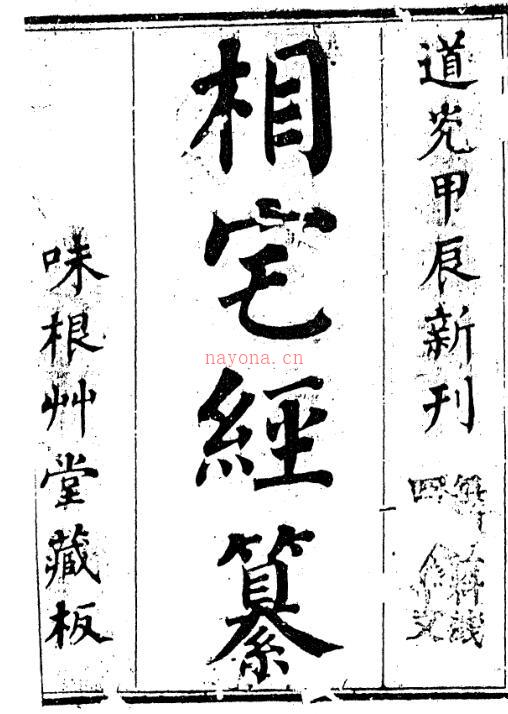 道光甲辰新刊
相宅經纂
味根艸堂藏板
nayona.cn